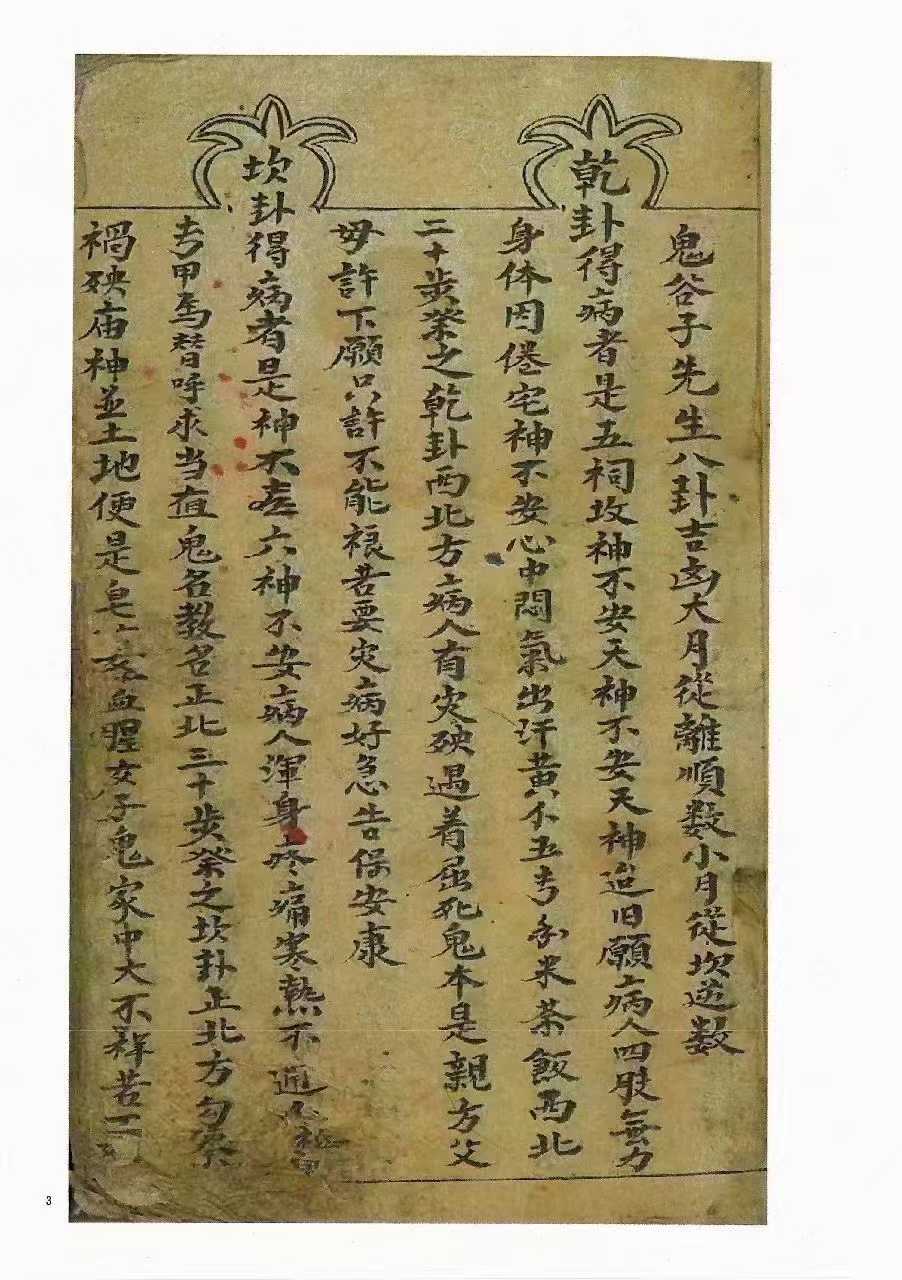 鬼谷子先生八卦吉凶大月從離順数小月從坎逆数
乾卦得病者是五祠坟神不安天神不安天神迯旧願病人四肢無力
身体困倦宅神不安心中悶氣出汗黄不五㐄米茶飯西北
二十步祭之乾卦西北方病人有灾殃遇着屈死鬼本是親方父
毋許下願只許不能禳若要灾病好急告保安康
坎卦得病者是神不六神不安病人渾身疼痛寒热不
甲馬替呼求当直鬼名教名正北三十步祭之坎卦正北方勾
禍殃庙神並土地便是皂血腥女子鬼家中大不祥若
3